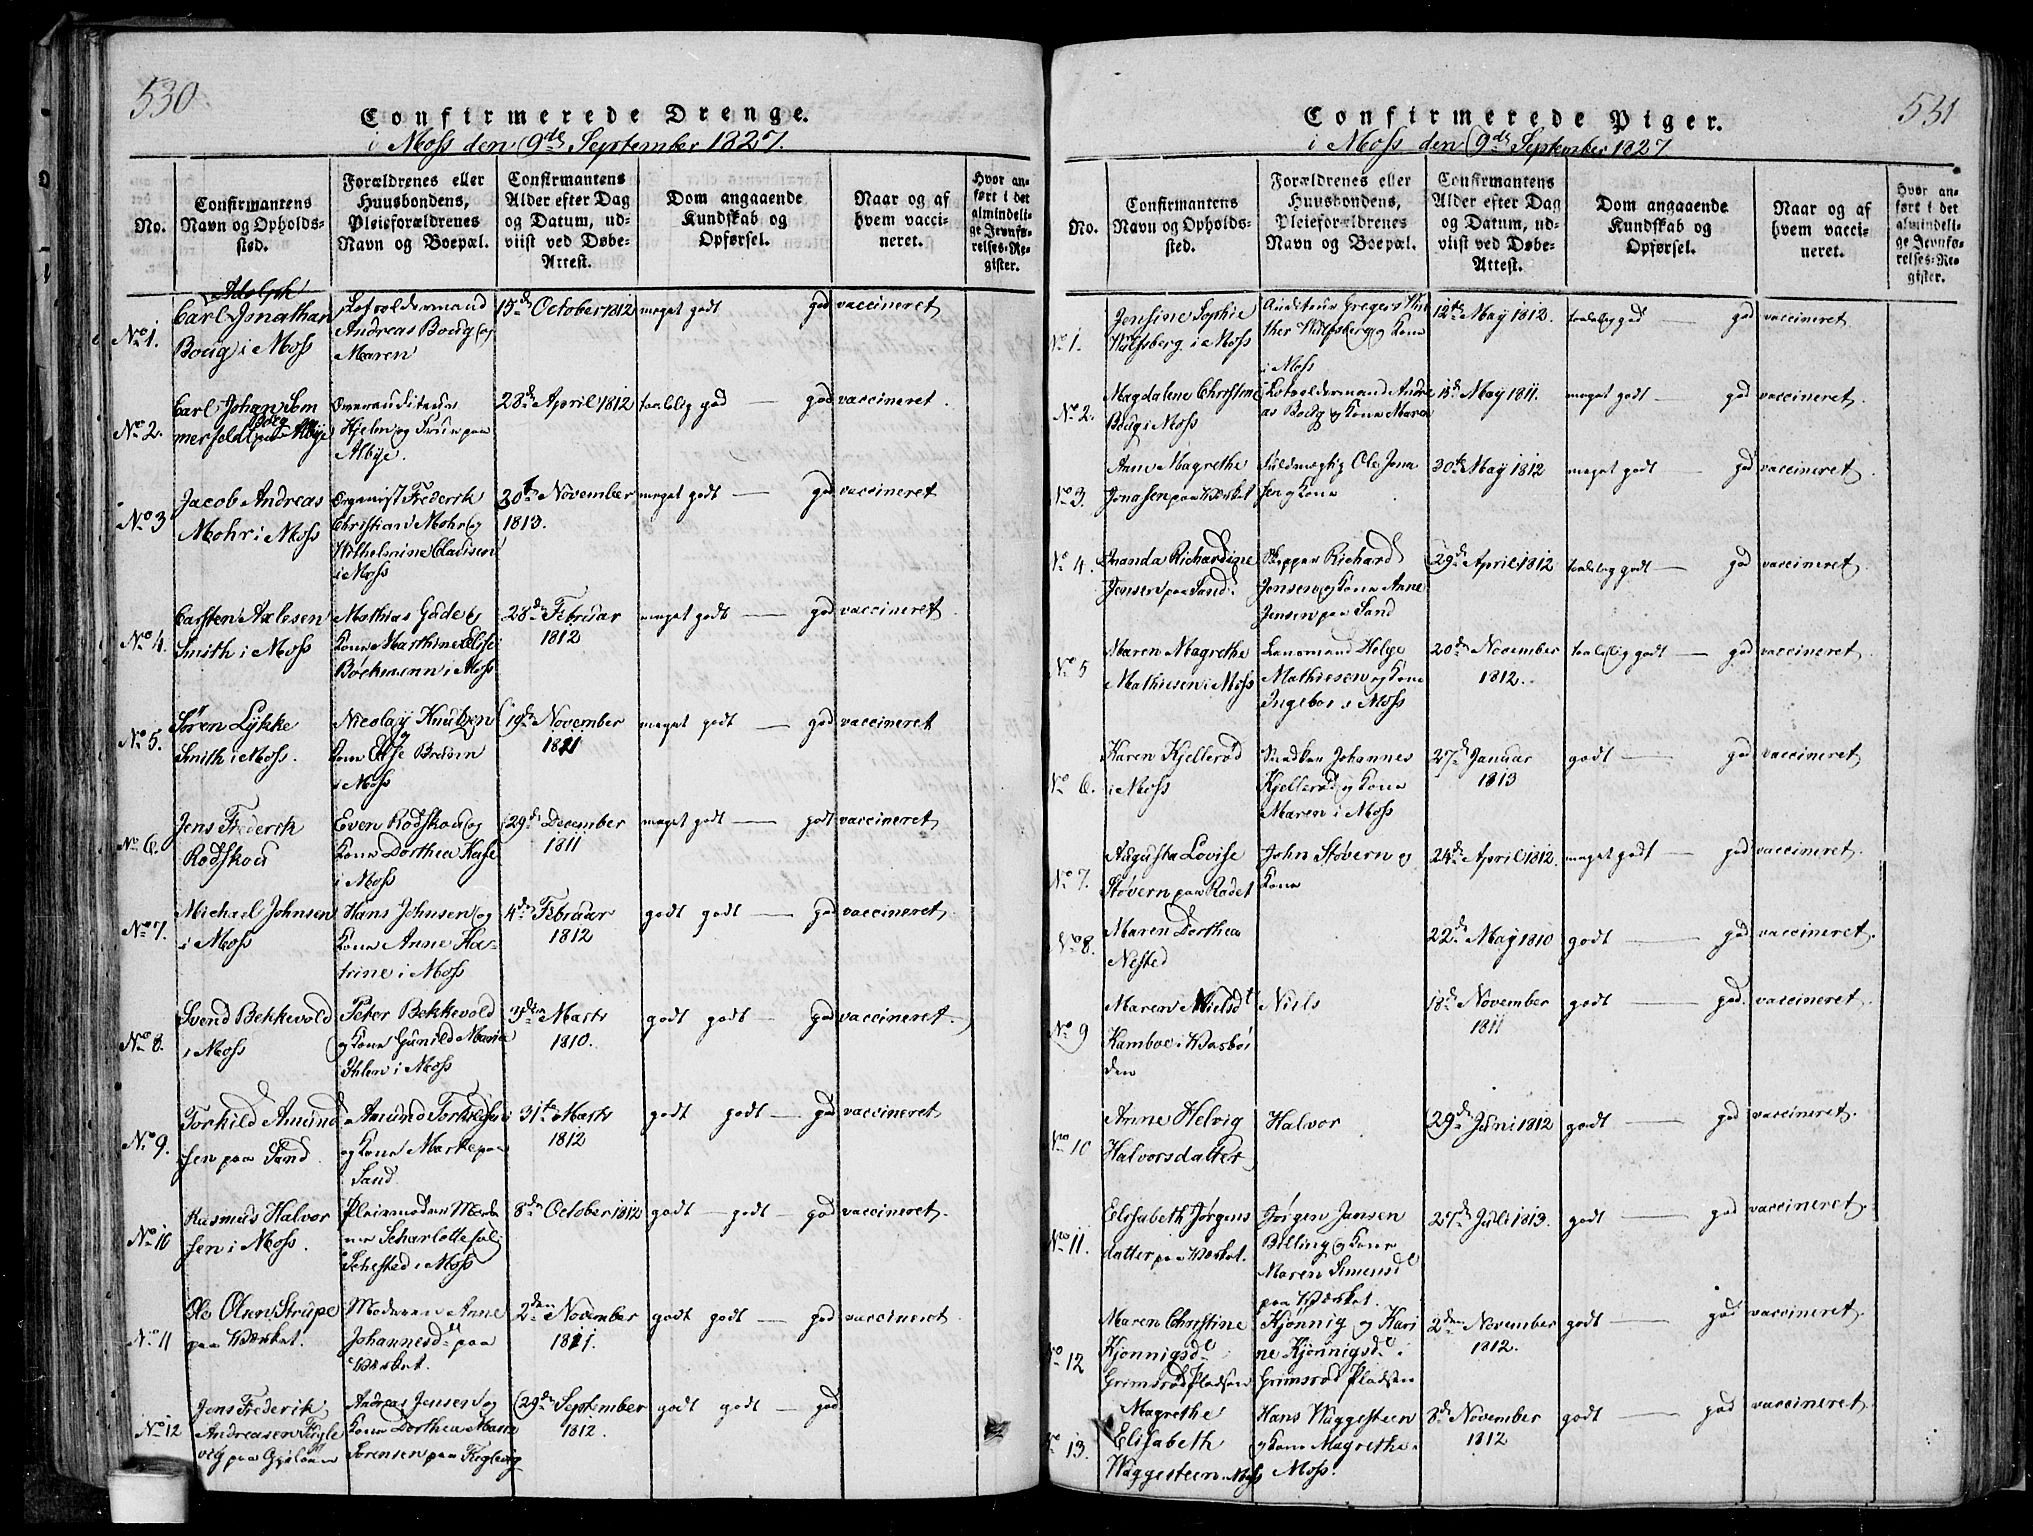 530
Confirmerede Drenge.
i Moss den 9de September 1827.
No.
Confirmantens Navn og Opholdssted.
Forældrenes eller Huusbondens, Pleieforældrenes Navn og Boepæl.
Confirmantens Alder efter Dag og Datum, udviist ved Døbe-Attest.
Dom angaaende Kundskab og Opførsel.
Naar og af hvem vaccineret.
Hvor anført i det almindelige Jevnførelses-Register.
No 1. Carl Adolph Jonathan
Boeig i Moss
Andreas Boeig og
Maren
15de October 1812 meget godt god vaccineret
No 2. Carl Johan Som
merfeldt paa Albye
Overauditeur
Hjelm og Frue paa
Albye.
28de April 1812 taalelig god god vaccineret.
No 3 Jacob Andreas
Mohr i Moss
Organist Frederik
Christian Mohr og
Wilhelmine Cladisen
i Moss
20t November
1813.
meget godt god vaccineret
No 4. Carsten Axlesen
Smith i Moss
Mathias Gade og
Kone Marthine Elise
Bøckmann i Moss
28de Februar
1812
meget godt god vaccineret
No 5. Søren Lykke
Smith i Moss.
Nicolay Knutzen
Kone Else Bredsen
i Moss
19de November
1811
meget godt god vaccineret
No 6. Jens Frederik
Rodskou
Even Rodskou og
Kone Dorthea
i Moss
29de December
1811
meget godt godt vaccineret
No 7. Michael Johnsen
i Moss
Hans Johnsen og
Kone Anne Ka-
trine i Moss
4de Februar
1812
godt godt god vaccineret
No 8. Svend Bekkevold
i Moss
Peter Bekkevold
og Kone Gunild Maria
Ihlen i Moss
3den Marts
1810.
godt godt god vaccineret
No 9. Torkild Amund
sen paa Sand
Amund Torkildsen
og Kone Marte paa
Sand.
31te Marts
1812
godt godt god vaccineret
No 10 Rasmus Halvor
sen i Moss.
Pleiemoderen
Scharlotte
Sehested i Moss
8de October 1812 godt godt god vaccineret.
No 11 Ole Olsen Strupe
paa Værket.
Moderen Anne
Johannesd. paa
Værket.
2den November
1811.
godt godt god vaccineret
No 12 Jens Frederik
Andreasen Fugle
vig paa Gjeløen
Andreas Jensen og
Kone Dorthea Maria
Sorensen paa Fuglevig
29de September
1812.
godt godt god
531
Confirmerede Piger.
i Moss den 9de September 1827
No.
Confirmantens Navn og Opholdssted.
Forældrenes eller Huusbondens, Pleieforældrenes Navn og Boepæl.
Confirmantens Alder efter Dag og Datum, udviist ved Døbe-Attest.
Dom angaaende Kundskab og Opførsel.
Naar og af hvem vaccineret.
Hvor anført i det almindelige Jevnførelses-Register.
No 1. Jensine Sophie
Wulfsberg i Moss
Auditeur Gregers Win
ther Wulfsberg og Kone
i Moss
12te May 1812. taalelig god god vaccineret
No 2. Magdalene Christine
Boeig i Moss
Andre
as Boeig og Kone Maren
15de May 1811. meget godt god vaccineret.
No 3. Anne Magrethe
Jonassen paa Værket
Fuldmegtig Ole Jona
sen og Kone
30te May 1812 meget godt god vaccineret
No 4. Jnanda Richardine
Jensen paa Sand.
Skipper Richard
Jensen og Kone Anne
Jensen paa Sand
29de April 1812 taalelig godt god vaccineret.
No 5 Maren Magrethe
Mathiesen i Moss
Lensmand Helge
Mathiesen og Kone
Ingebor i Moss
20de November
1812.
taalelig godt god vaccineret.
No 6. Karen Kjellerød
i Moss
Snedker Johannes
Kjellerød og Kone
Maren i Moss
27de Januar
1813
godt god vaccineret.
No 7. Augusta Lovise
Støvern paa Rødet
John Støvern og
Kone
24de April 1812. meget godt god vaccineret.
No 8. Maren Dorthea
Nested
22de May 1810 godt god vaccineret.
No 9 Maren Nielsd
Kamboe i
den
Niels
18de November
1811
godt god. vaccineret.
No 10 Anne Helvig
Halvorsdatter
Halvor
29de Juni 1812 godt god vaccineret.
No 11. Elisabeth Jørgens
datter paa Værket.
Jørgen Jansen
Billing og Kone
Maren Simensd
paa Værket.
27de Juli 1813. godt god vaccineret.
No 12 Maren Christine
Kjønnigsd
Grimsrød Pladsen
Kjønnig og Kari
ne Kjønnigsd i
Grimsrød Pladsen
2den November
1812.
godt god vaccineret
No 13. Magrethe
Elisabeth
Waggesteen. Moss
Hans Waggesteen
og Kone Magrethe.
Moss.
8de November
1812
godt god vaccineret